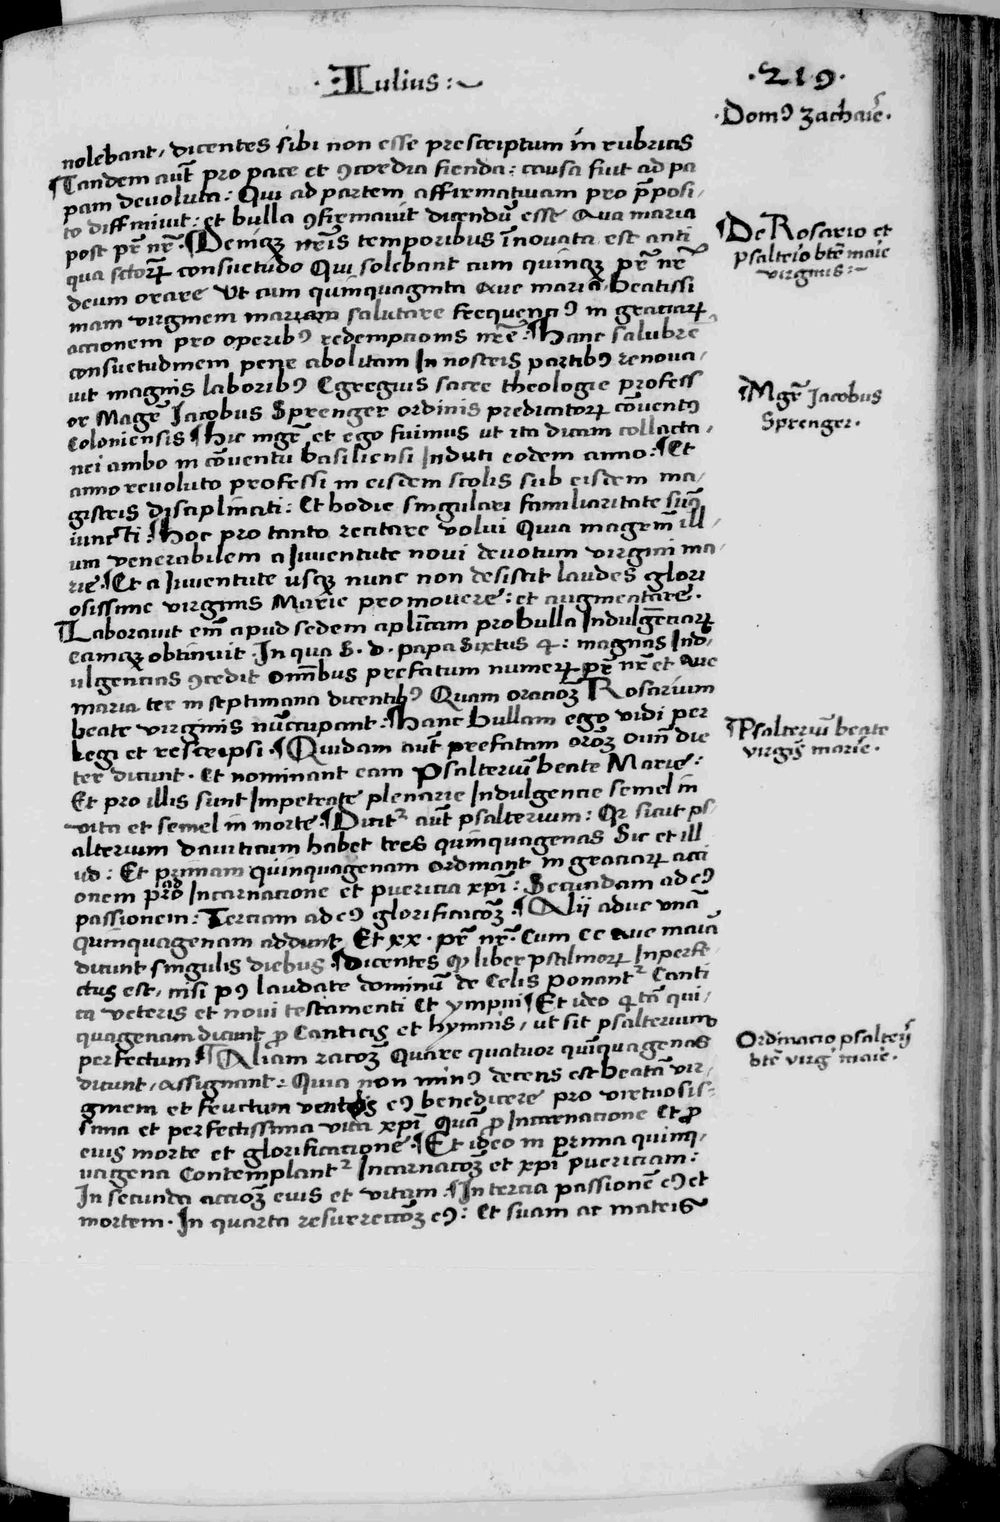 · Iulius :~
· 219 ·
· Domꝰ zacharie ·
nolebant, dicentes sibi non esse prescriptum in rubricis
¶ Tandem aut̄ pro pace et ꝯcordia fienda : causa fuit ad pa
pam deuoluta : Qui ad partem affirmatiuam pro p̄posi/
to diffiniuit : et bulla ꝯfirmauit dicendū esse Aua maria
post pr̄ nr̄ · ¶ Deniqꝫ nr̄is temporibus īnouata est anti
qua sctorꝝ consuetudo Qui solebant cum quinqꝫ pr̄ nr̄
deum orare Vt cum quinquaginta Aue maria, beatissi
mam virginem mariam salutare frequentꝰ in graciarꝝ
accionem pro operibꝰ redempcionis nrē · ¶ Hanc salubrē
consuetudinem pene abolitam In nostris partibꝰ renoua/
uit magnis laboribꝰ Egregius sacre theologie profess
or Magr̄ Jacobus Sprenger ordinis predicatorꝝ cōuentꝰ
Coloniensis ¶ Hic mgr̄ et ego fuimus ut ita dicam collacta,
nei ambo in cōuentu basiliensi Induti eodem anno : ¶ Et
anno reuoluto professi in eisdem scolis sub eisdem ma/
gistris disciplinati : Et hodie singulari familiaritate sum̄
iuncti : ¶ Hoc pro tanto recitare volui Quia magrm̄ ill/
um venerabilem a Iuuentute noui deuotum virgini ma/
rie · ¶ Et a Iuuentute usqꝫ nunc non desistit laudes glori
osissime virginis Marie promouere : et augmentare ·
¶ Laborauit em̄ apud sedem aplicam pro bulla Indulgēciarꝝ
eamqꝫ obtinuit In qua S · d · papa Sixtus 4 : magnas Ind/
ulgencias ꝯcedit Omībus prefatum numerꝝ pr̄ nr̄ et Aue
maria ter in septimana dicentibꝰ Quam oracioꝫ Rosarium
beate virginis nūccupant : ¶ Hanc bullam ego vidi per
legi et rescripsi · ¶ Quidam aut̄ prefatam orōꝫ Omī die
ter dicunt · et nominant eam Psalteriū beate Marie :
Et pro illis sunt Impetrate plenarie Indulgencie semel in
vita et semel in morte · ¶ Dicit² aut̄ psalterium : Qꝛ sicut ps/
alterium dauiticum habet tres quinquagenas Sic et ill
ud : Et primam quinquagenam ordinant in graciarꝝ acci
onem pro Incarnacione et puericia xpī : Secundam ad eꝰ
passionem : Terciam ad eꝰ glorificacōꝫ · ¶ Alij aduc vnā
quinquagenam addunt Et xx · pr̄ nr̄ · Cum cc Aue maia
dicunt singulis diebus · ¶ Dicentes qꝫ liber psalmorꝝ Inperfe/
ctus est, nisi pꝰ laudate dominū de Celis Ponant² Canti
ca veteris et noui testamenti Et ympni ¶ Et ideo 4 tā qui/
quagenam dicunt ꝓ Canticis et hymnis, ut sit psalterium
perfectum ¶ Aliam racōꝫ Quare quatuor quīquagenas
dicunt, assignant : Quia non minꝰ decens est beatā vir/
ginem et fructum ventris eꝰ benedicere pro virtuosis/
sima et perfectissima vita xpī Quā ꝓ Incarnacione Et ꝓ
eius morte et glorificacione · ¶ Et ideo in prima quinq/
uagena Contemplant² Incarnacōꝫ et xpī puericiam :
In secunda accioꝫ eius et vitam · ¶ In tercia passionē eꝰ et
mortem · In quarta resurreccōꝫ eꝰ : Et suam ac matris
¶ De Rosario et
psalterio btē maie
virginis :~
¶ Mgr̄ Jacobus
Sprenger ·
¶ Psalteriū beate
virgis̄ marie ·
Ordinacio psalterij
btē virḡ maie ·